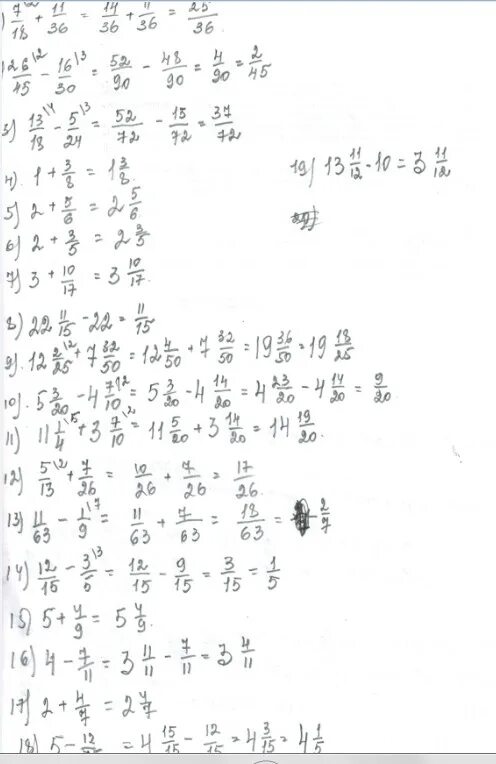 ) 7/18 \2 + 11/36 = 14/36 + 11/36 = 25/36
26/45 \2 - 16/30 \3 = 52/90 - 48/90 = 4/90 = 2/45
3) 13/18 \4 - 5/24 \3 = 52/72 - 15/72 = 37/72
4) 1 + 3/8 = 1 3/8.
5) 2 + 5/6 = 2 5/6
6) 2 + 3/5 = 2 3/5
7) 3 + 10/17 = 3 10/17.
8) 22 11/15 - 22 = 11/15
9) 12 2/25 \2 + 7 32/50 = 12 4/50 + 7 32/50 = 19 36/50 = 19 18/25
10). 5 3/20 - 4 7/10 \2 = 5 3/20 - 4 14/20 = 4 23/20 - 4 14/20 = 9/20
11) 11 1/4 \5 + 3 7/10 \2 = 11 5/20 + 3 14/20 = 14 19/20.
12) 5/13 \2 + 7/26 = 10/26 + 7/26 = 17/26.
13) 11/63 - 1/9 \7 = 11/63 + 7/63 = 18/63 = 2/7
14) 12/15 - 3/5 \3 = 12/15 - 9/15 = 3/15 = 1/5
15) 5 + 4/9 = 5 4/9.
16) 4 - 7/11 = 3 11/11 - 7/11 = 3 4/11
17) 2 + 4/7 = 2 4/7
18) 5 - 12/ = 4 15/15 - 12/15 = 4 3/15 = 4 1/5
19) 13 11/12 - 10 = 3 11/12